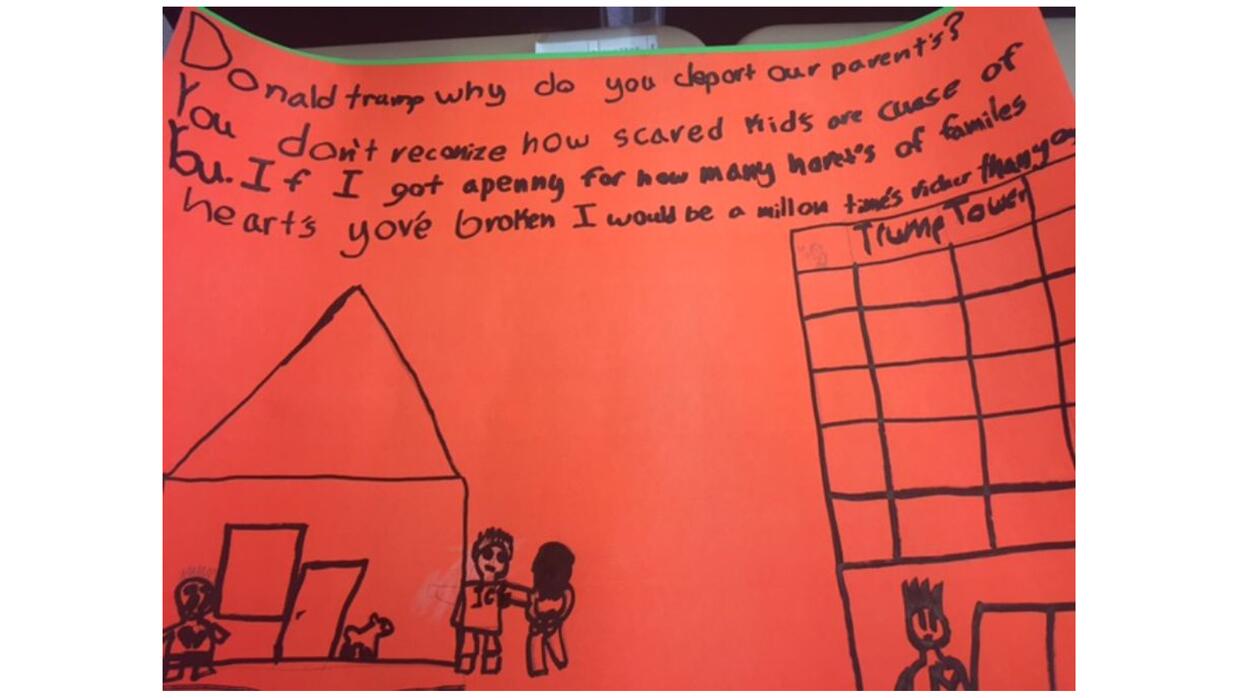 Donald trump why do you deport our parent's?
You don't reconize how scared kid's are cuase of
You. If I got apenny for how many haret's of familes
heart's yov'e broken I would be a millon time's richer than you
Trump Tower
IC